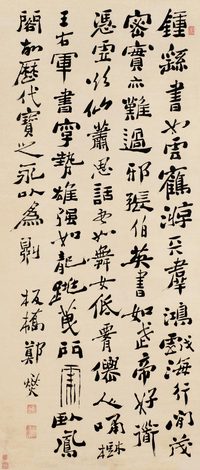 鍾繇書如雲鶴游天羣鴻戲海行間茂
密實亦難過邪張伯英書如武帝好道
憑虛欲仙蕭思話書如舞女低腰僊人嘯樹
王右軍書字勢雄強如龍跳天門虎臥鳳
閣故歷代寶之永以為訓 板橋鄭燮